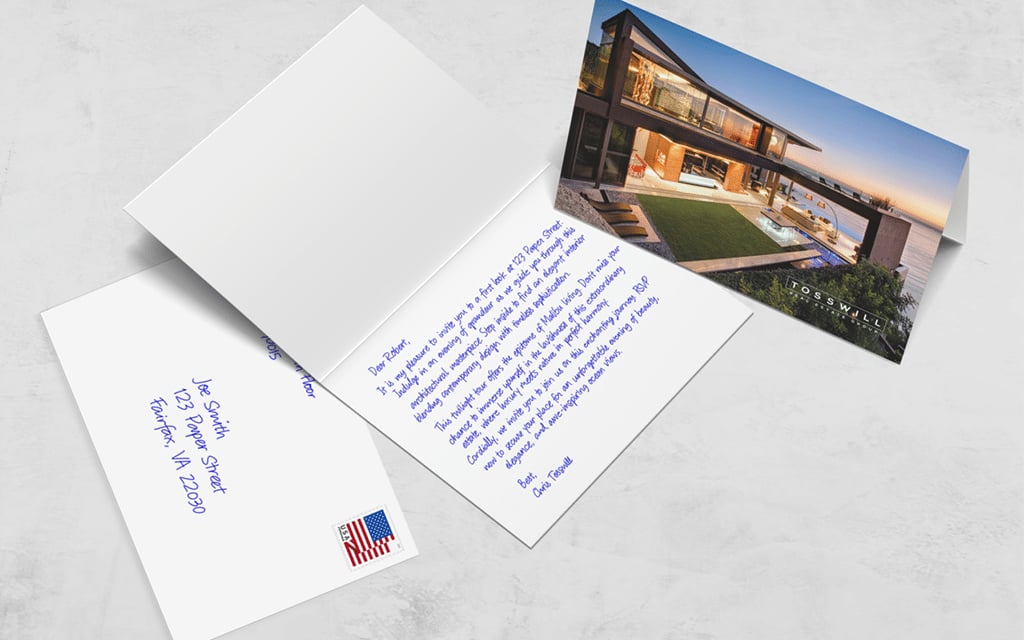 Dear Robert,
It is my pleasure to invite you to a first look at 123 Paper Street.
Indulge in an evening of grandeur as we guide you through this
architectural masterpiece. Step inside to find an elegant interior
blending contemporary design with timeless sophistication.
This twilight tour offers the epitome of Malibu living. Don't miss your
chance to immerse yourself in the lavishness of this extraordinary
estate, where luxury meets nature in perfect harmony.
Cordially, we invite you to join us on this enchanting journey. RSVP
now to secure your place for an unforgettable evening of beauty,
elegance, and awe-inspiring ocean views.
Best,
Chris Tosswill
Floor
Joe Smith
123 Paper Street
Fairfax, VA 22030
USA
TOSSWILL